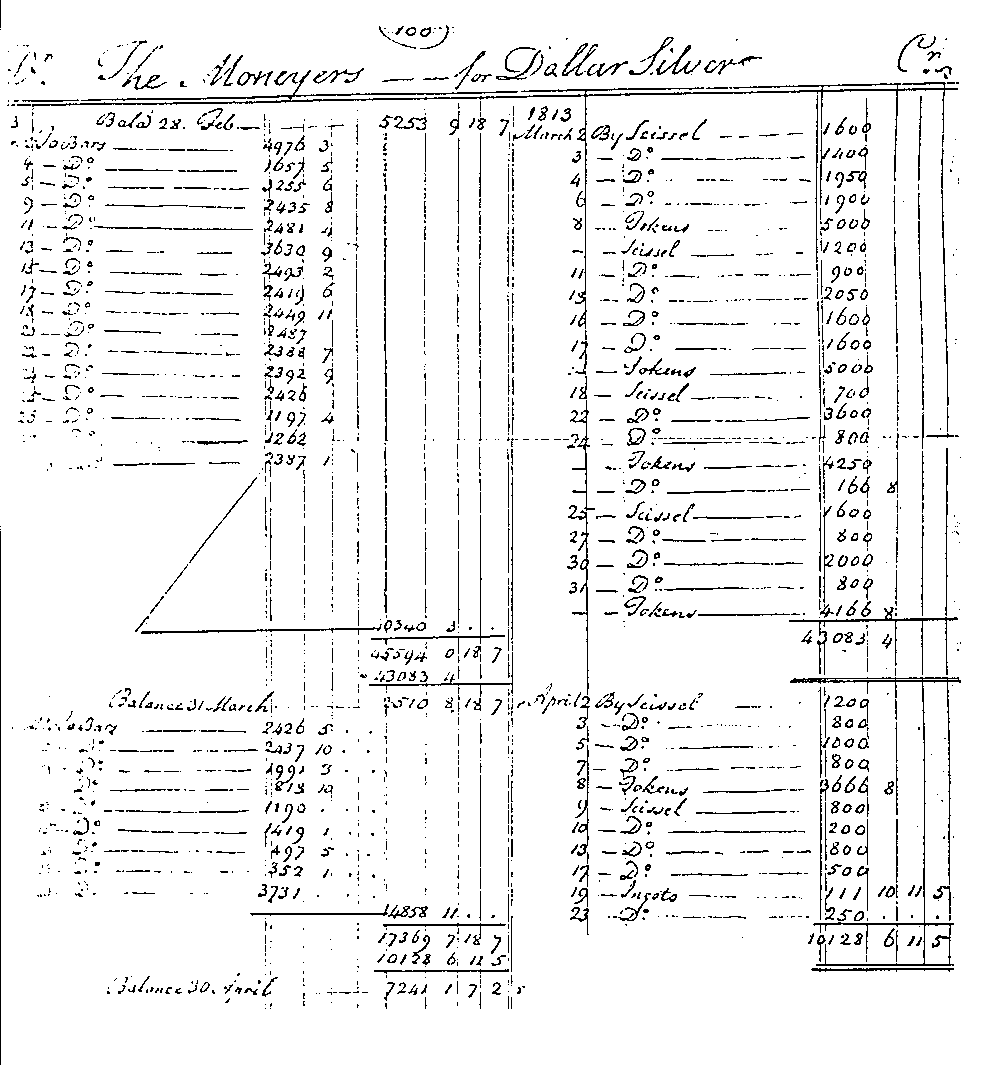 100
Dr. The Moneyers — — for Dollar Silver Cr.
3 Balce 28. Feb — 5253 9 18 7
2 To Bars 4976 3
4 — Do 1657 5
5 — Do 3255 6
9 — Do 2435 8
11 — Do 2481 4
13 — Do 3630 9
15 — Do 2493 2
17 — Do 2419 6
18 — Do 2449 11
Do 2487
Do 2388 7
Do 2392 9
Do 2426
25 — Do 1197 4
1262
2387 1
40340 3 . .
45594 0 18 7
43083 4
Balance 31 March 2510 8 18 7
To Bars 2426 5 . .
2437 10 . .
1991 3 . .
813 10
1190 . . .
1419 1 . .
497 5 . .
352 1 . .
3731 . . .
14858 11 . .
17369 7 18 7
10128 6 11 5
Balance 30. April 7241 1 7 2
1813
March 2 By Scissel 1600
3 — Do 1400
4 — Do 1950
6 — Do 1900
8 — Tokens 5000
— Scissel 1200
11 — Do 900
13 — Do 2050
16 — Do 1600
17 — Do 1600
— Tokens 5000
18 — Scissel 700
22 — Do 3600
24 — Do 800
— Tokens 4250
— Do 166 8
25 — Scissel 1600
27 — Do 800
30 — Do 2000
31 — Do 800
— Tokens 4166 8
43083 4
April 2 By Scissel 1200
3 — Do 800
5 — Do 1000
7 — Do 800
8 — Tokens 3666 8
9 — Scissel 800
10 — Do 200
13 — Do 800
17 — Do 500
19 — Ingots 111 10 11 5
23 — Do 250 . . .
10128 6 11 5